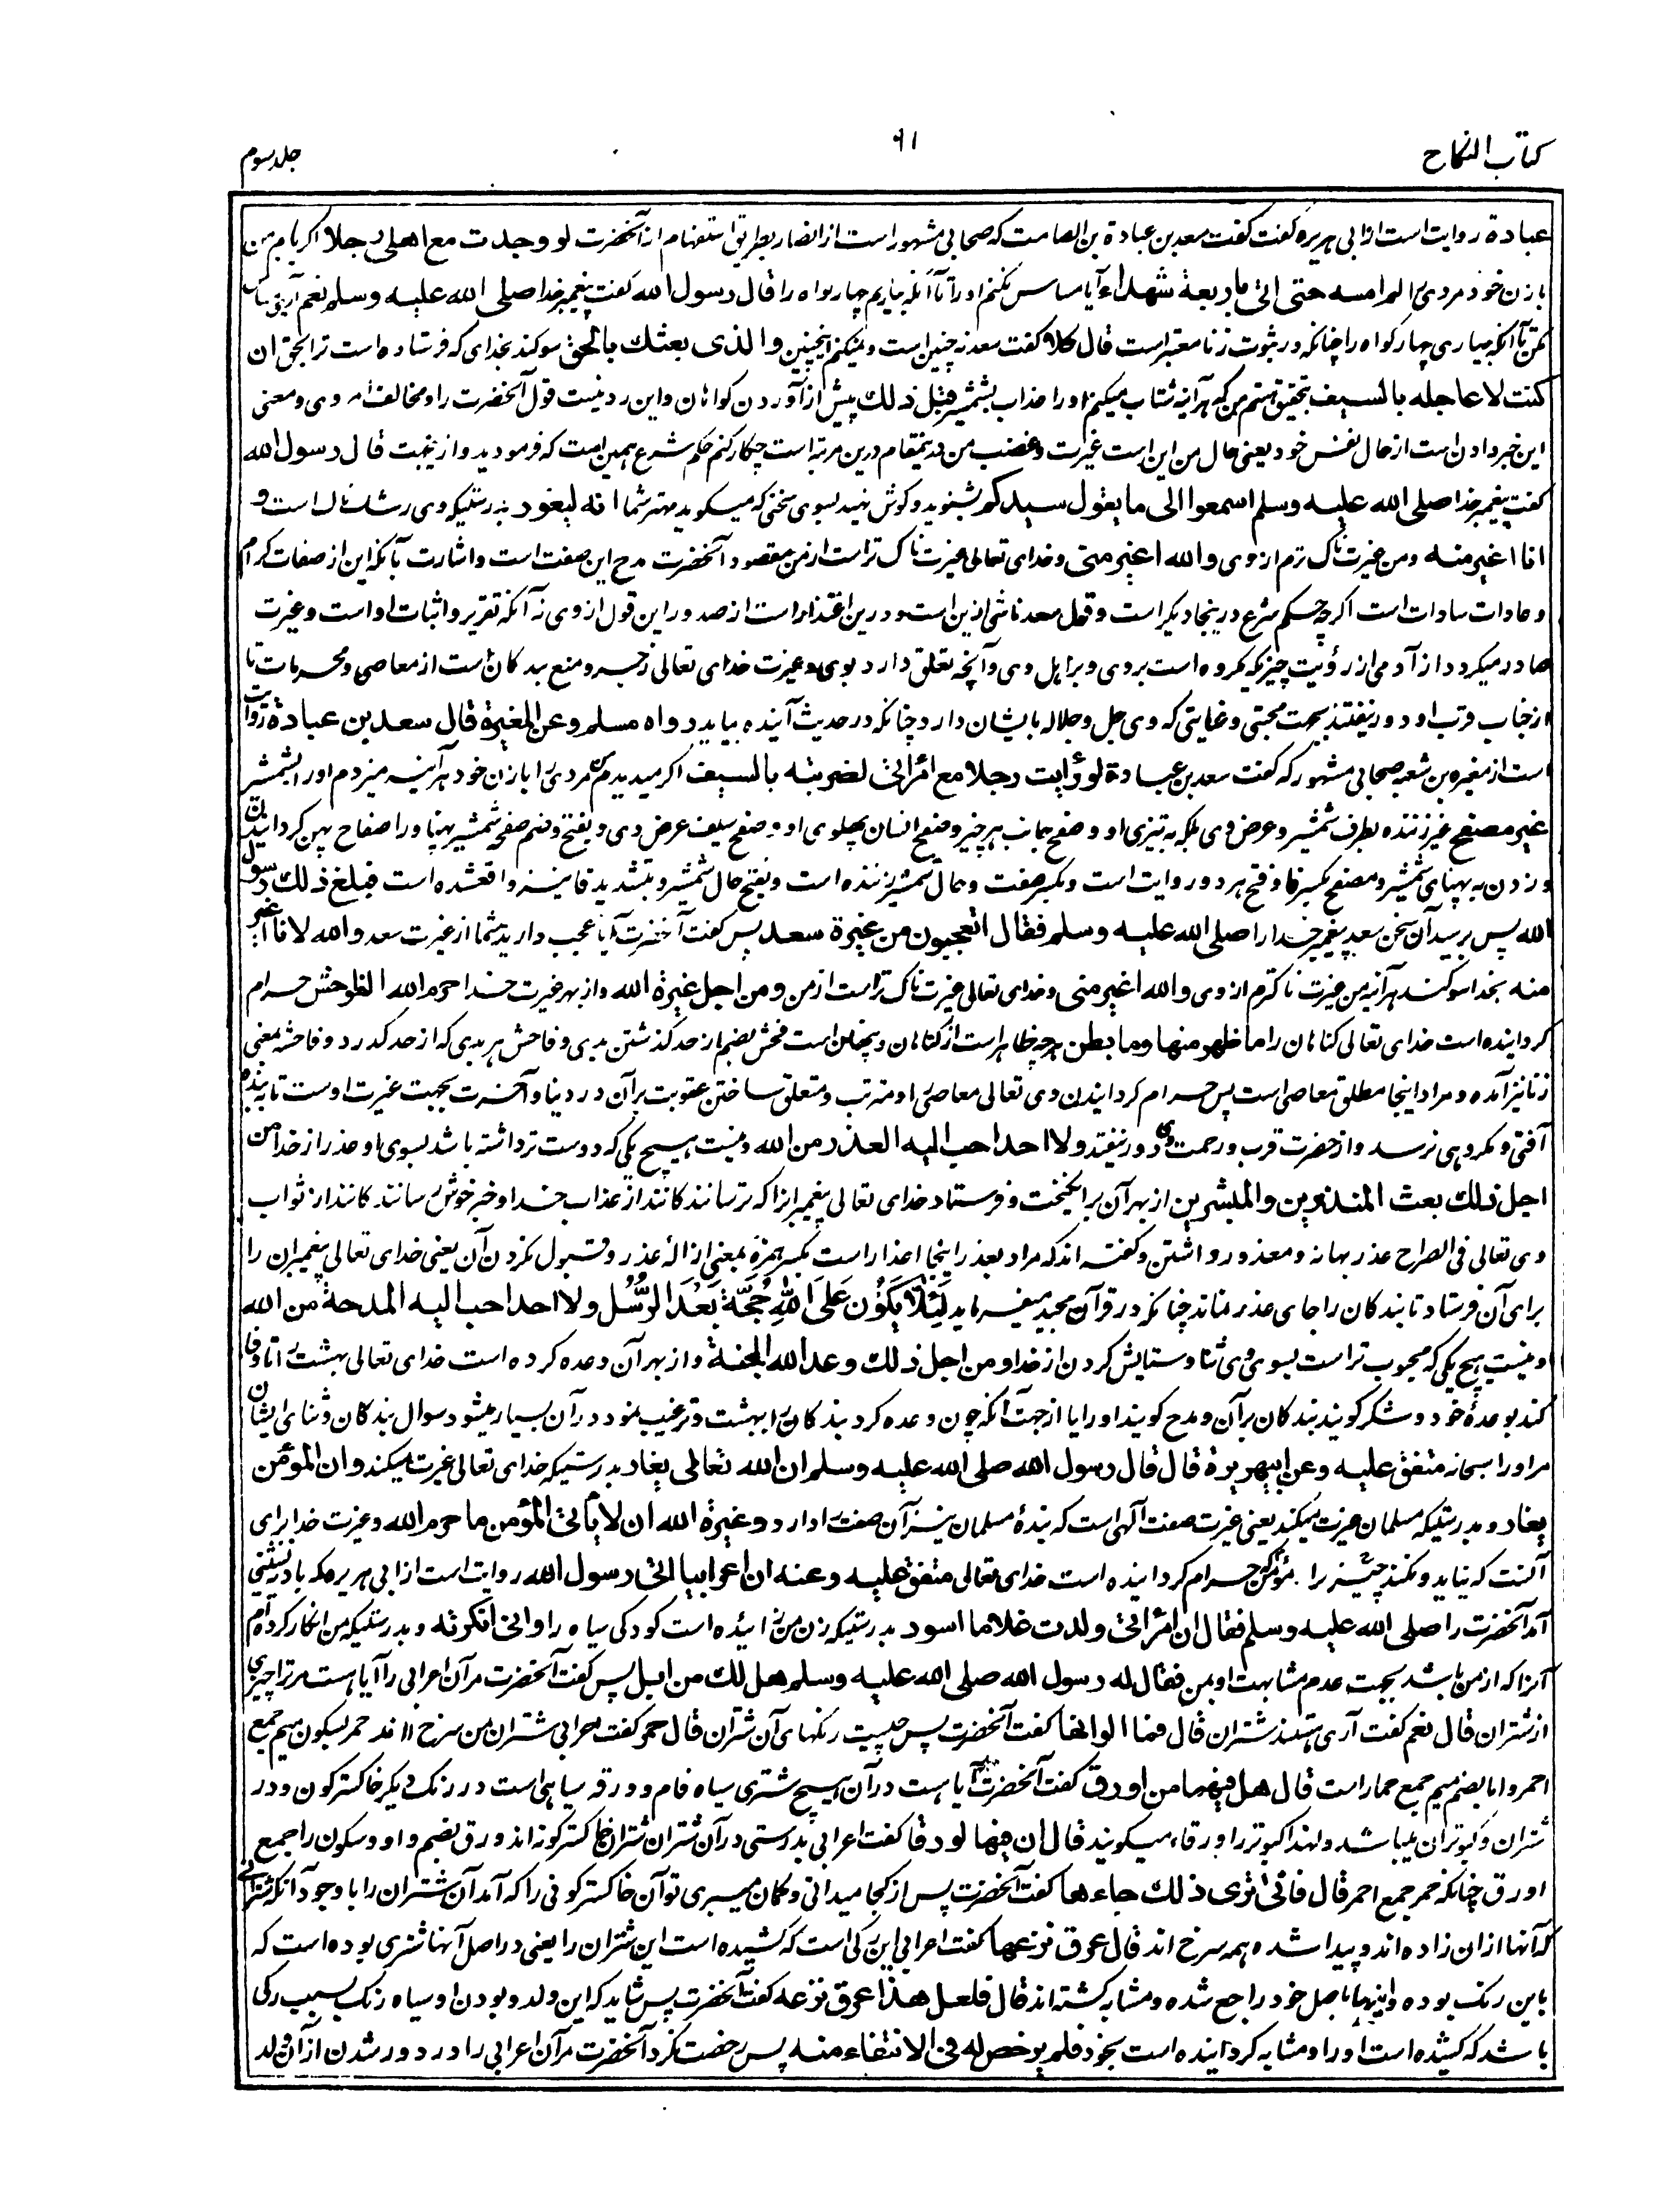 کتاب النکاح
۹۱
جلد سوم
عبادة روایت است از ابی هریره گفت گفت سعد بن عبادة بن الصامت که صحابی مشهور است از انصار بطریق استفهام از آنحضرت لو وجدت مع اهلی رجلا اگر یابم من
با زن خود مردی را لم امسه حتی اتی باربعة شهداء آیا مساس نکنم او را تا آنکه بیارم چهار گواه را قال رسول الله گفت پیغمبر خدا صلی الله علیه وسلم نعم آری
تا آنکه بیاری چهار گواه را چنانکه در ثبوت زنا معتبر است قال کلا گفت سعد نه چنین است و نمیکنم اینچنین والذی بعثك بالحق سوگند بخدای که فرستاده است ترا بحق ان
کنت لاعاجله بالسیف بتحقیق هستم من که هر آینه شتاب میکنم او را عذاب بشمشیر قبل ذلك پیش از آوردن گواهان و این رد نیست قول آنحضرت را و مخالفت امر وی و معنی
این خبر دادن است از حال نفس خود یعنی حال من این است غیرت و غضب من درینمقام درین مرتبه است چکار کنم حکم شرع همین است که فرمودید و ازینجهت قال رسول الله
گفت پیغمبر خدا صلی الله علیه وسلم اسمعوا الی ما یقول سیدکم بشنوید و گوش نهید بسوی سخنی که میگوید مهتر شما انه لیغور بدرستیکه وی رشکناک است و
انا اغیر منه و من غیرت ناک ترم از وی والله اغیر منی و خدای تعالی غیرت ناک تر است از من مقصود آنحضرت مدح این صفت است و اشارت بآنکه این از صفات کرام
و عادات سادات است اگرچه حکم شرع درینجا دیگر است و قول سعد ناشی ازین است و درین اعتذار است از صدور این قول از وی نه آنکه تقریر و اثبات او است و غیرت
صادر میگردد از آدمی از رؤیت چیزیکه مکروه است بر وی و بر اهل وی و آنچه تعلق دارد بوی و غیرت خدای تعالی زجر و منع بندگان است از معاصی و محرمات تا
از جناب قرب او دور نیفتند بجهت محبتی و عنایتی که وی جل و جلاله بایشان دارد چنانکه در حدیث آینده بیاید رواه مسلم وعن المغیرة قال سعد بن عبادة روایت
است از مغیره بن شعبه صحابی مشهور که گفت سعد بن عبادة لو رأیت رجلا مع امرأتی لضربته بالسیف اگر میدیدم من مردی را با زن خود هر آینه میزدم او را بشمشیر
غیر مصفح غیر زننده بطرف شمشیر و عرض وی بلکه به تیزی او و صفح جانب هر چیز و صفح انسان پهلوی او و صفح سیف عرض وی و بفتح و ضم صفحه شمشیر پهنا و را صفاح پهن گردانیدن
و زدن به پهنای شمشیر و مصفح بکسر فا و فتح هر دو روایت است و بکسر صفت و حال شمشیر زننده است و بفتح حال شمشیر و بتشدید فا نیز واقعشده است فبلغ ذلك رسول
الله پس برسید آن سخن سعد پیغمبر خدا را صلی الله علیه وسلم فقال اتعجبون من غیرة سعد پس گفت آنحضرت آیا عجب دارید شما از غیرت سعد والله لانا اغیر
منه بخدا سوگند هر آینه من غیرت ناکترم از وی والله اغیر منی و خدای تعالی غیرت ناک تر است از من ومن اجل غیرة الله و از بهر غیرت خدا حرم الله الفواحش حرام
گردانیده است خدای تعالی گناهان را ما ظهر منها وما بطن هر چه ظاهر است از گناهان و پنهان است فحش بضم از حد گذشتن بدی و فاحش هر بدی که از حد گذرد و فاحشه بمعنی
زنا نیز آمده و مراد اینجا مطلق معاصی است پس حرام گردانیدن وی تعالی معاصی را و مترتب و متعلق ساختن عقوبت بر آن در دنیا و آخرت بجهت غیرت اوست تا به بنده
آفتی و مکروهی نرسد و از حضرت قرب و رحمت وی دور نیفتد ولا احد احب الیه العذر من الله و نیست هیچ یکی که دوست تر داشته باشد بسوی او عذر از خدا من
اجل ذلك بعث المنذرین والمبشرین از بهر آن برانگیخت و فرستاد خدای تعالی پیغمبرانرا که ترسانند گانند از عذاب خدا و خبر خوش رسانند گانند از ثواب
وی تعالی فی الصراح عذر بهانه و معذور داشتن و گفته اند که مراد بعذر اینجا اعذار است بکسر همزه بمعنی ازاله عذر و قبول نکردن آن یعنی خدای تعالی پیغمبران را
برای آن فرستاد تا بندگان را جای عذر نماند چنانکه در قرآن مجید میفرماید لِئَلَّا یَکُونَ عَلَی اللهِ حُجَّةٌ بَعْدَ الرُّسُلِ ولا احد احب الیه المدحة من الله
و نیست هیچ یکی که محبوب تر است بسوی وی ثنا و ستایش کردن از خدا ومن اجل ذلك وعد الله الجنة و از بهر آن وعده کرده است خدای تعالی بهشت را تا وفا
کند بوعدهٔ خود و شکر گویند بندگان بر آن و مدح گویند او را یا از جهت آنکه چون وعده کرد بندگان را بهشت و ترغیب نمود در آن بسیار میشود سوال بندگان و ثنای ایشان
مر او را سبحانه متفق علیه وعن ابیهریرة قال قال رسول الله صلی الله علیه وسلم ان الله تعالی یغار بدرستیکه خدای تعالی غیرت میکند وان المؤمن
یغار و بدرستیکه مسلمان غیرت میکند یعنی غیرت صفت آلهی است که بندهٔ مسلمان نیز آن صفت را دارد وغیرة الله ان لا یأتی المؤمن ما حرم الله و غیرت خدا برای
آنست که نیاید و نکند چیزیرا مؤمن که حرام گردانیده است خدای تعالی متفق علیه وعنه ان اعرابیا اتی رسول الله روایت است از ابی هریره که بادیه نشینی
آمد آنحضرت را صلی الله علیه وسلم فقال ان امرأتی ولدت غلاما اسود بدرستیکه زن من زائیده است کودکی سیاه را وانی انکرته و بدرستیکه من انکار کرده ام
آنرا که از من باشد بجهت عدم مشابهت او بمن فقال له رسول الله صلی الله علیه وسلم هل لك من ابل پس گفت آنحضرت مر آن اعرابی را آیا هست مر ترا چیزی
از شتران قال نعم گفت آری هستند شتران قال فما الوانها گفت آنحضرت پس چیست رنگهای آن شتران قال حمر گفت اعرابی شتران من سرخ اند حمر بسکون میم جمع
احمر و اما بضم میم جمع حمار است قال هل فیها من اورق گفت آنحضرت آیا هست در آن هیچ شتری سیاه فام و ورقه سیاهی است در رنگ دیگر خاکستر گون و در
شتران و کبوتران میباشد و لهذا کبوتر را ورقاء میگویند قال ان فیها لورقا گفت اعرابی بدرستی در آن شتران شتران خاکستر گونه اند ورق بضم واو و سکون را جمع
اورق چنانکه حمر جمع احمر قال فانی تری ذلك جاءها گفت آنحضرت پس از کجا میدانی و گمان میبری تو آن خاکستر گونی را که آمد آن شتران را با وجود آنکه شترانی
که آنها ازان زاده اند و پیدا شده همه سرخ اند قال عرق نزعها گفت اعرابی این رگی است که کشیده است این شتران را یعنی در اصل آنها شتری بوده است که
باین رنگ بوده و اینها باصل خود راجع شده و مشابه گشته اند قال فلعل هذا عرق نزعه گفت آنحضرت پس شاید که این ولد و بودن او سیاه رنگ بسبب رگی
باشد که کشیده است او را و مشابه گردانیده است بخود فلم یرخص له فی الانتفاء منه پس رخصت نکرد آنحضرت مر آن اعرابی را در دور شدن از آن ولد